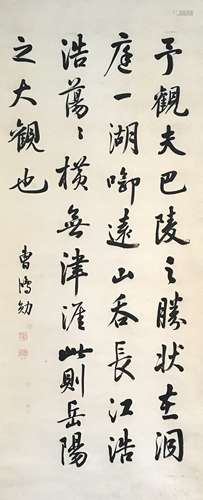 予觀夫巴陵之勝狀在洞
庭一湖啣遠山吞長江浩
浩蕩〻橫無津涯此則岳陽
之大觀也
曹鴻勛